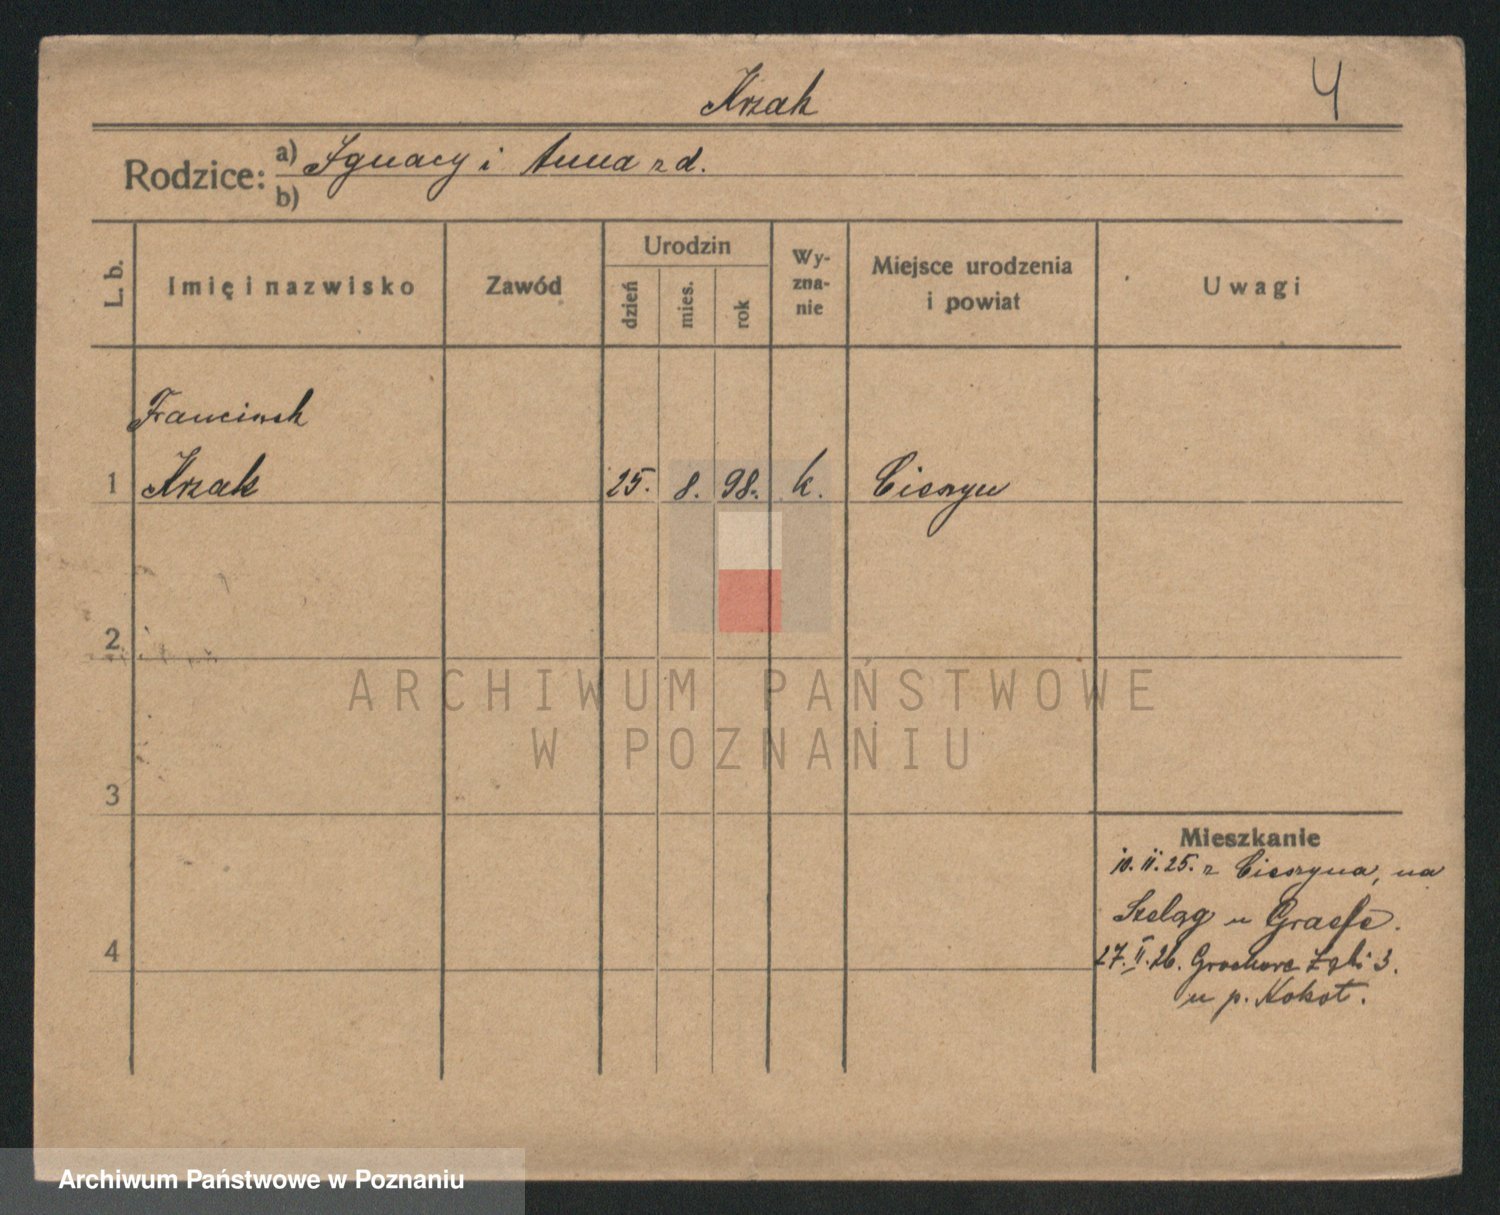 Krzak
4
Rodzice: a) Ignacy i Anna z d.
b)
L. b.
Imię i nazwisko
Zawód
Urodzin
dzień
mies.
rok
Wy-
zna-
nie
Miejsce urodzenia
i powiat
Uwagi
Franciszek
1 Krzak 25. 8. 98. k. Cieszyn
2
3
4
ARCHIWUM PAŃSTWOWE
W POZNANIU
Mieszkanie
10.II.25. z Cieszyna, na
Szeląg u Graefe.
27.II.26. Grochowe Łąki 3.
u p. Kokot.
Archiwum Państwowe w Poznaniu